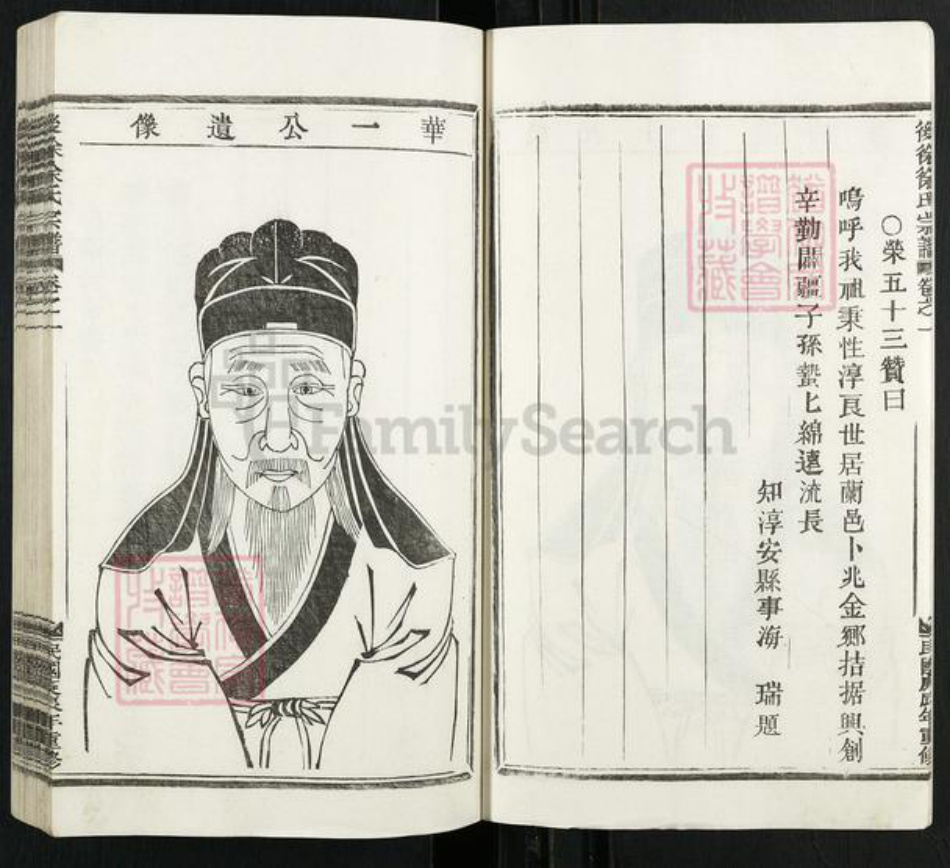 ○榮五十三贊曰
嗚呼我祖秉性淳良世居蘭邑卜兆金鄉拮据興創
辛勤闢疆子孫蟄匕綿遠流長
知淳安縣事海 瑞題
華一公遺像
徐氏宗譜
譜學會
收藏
FamilySearch